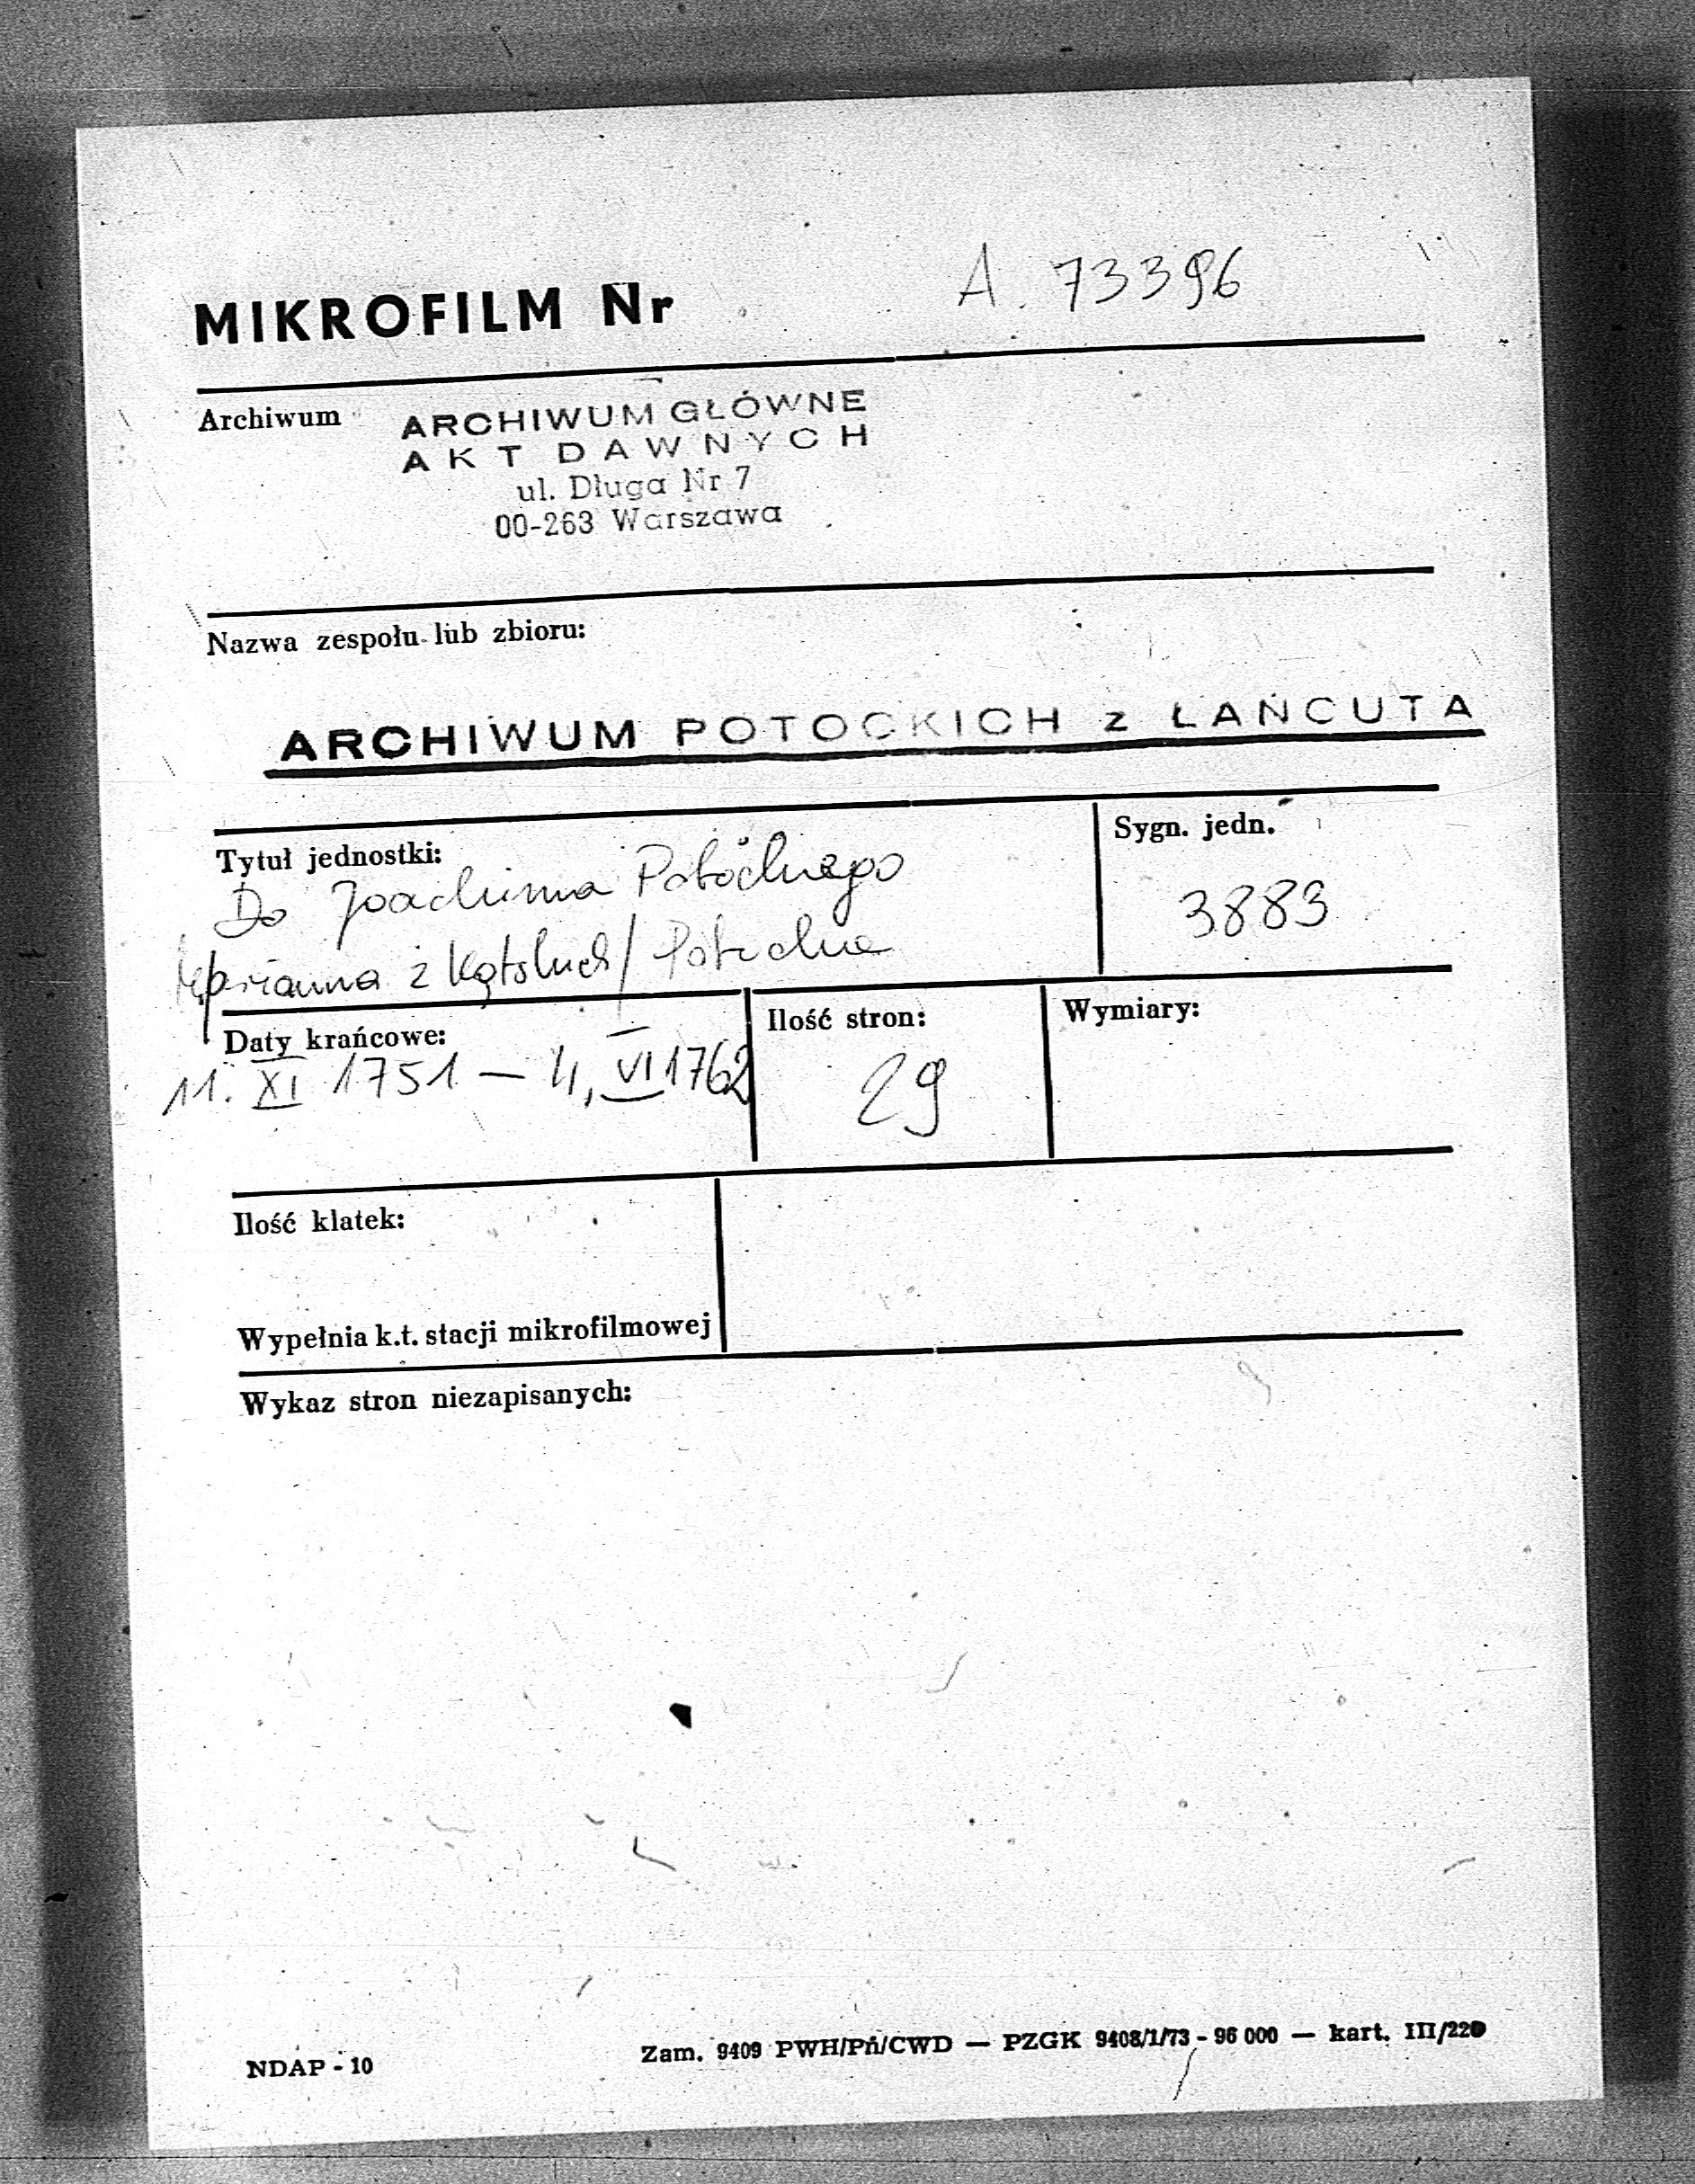 MIKROFILM Nr A. 73396
Archiwum
ARCHIWUM GŁÓWNE
AKT DAWNYCH
ul. Długa Nr 7
00-263 Warszawa
Nazwa zespołu lub zbioru:
ARCHIWUM POTOCKICH z ŁAŃCUTA
Tytuł jednostki:
Do Joachima Potockiego
z Kątskich / Potocka
Sygn. jedn.
3883
Daty krańcowe:
11. XI 1751 — 4, VI 1762
Ilość stron:
29
Wymiary:
Ilość klatek:
Wypełnia k.t. stacji mikrofilmowej
Wykaz stron niezapisanych:
NDAP - 10
Zam. 9409 PWH/Pń/CWD — PZGK 9408/1/73 - 96 000 — kart. III/220